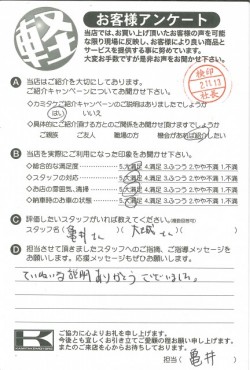 軽
お客様アンケート
当店では、お買い上げ頂いたお客様の声を可能
な限り現場に反映し、お客様により良い商品と
サービスを提供する事に努めています。
大変お手数ですが是非お声をお聞かせ下さい。
A 当店はご紹介を大切にしております。
ご紹介キャンペーンについてお聞かせ下さい。
◇カミタケご紹介キャンペーンのご説明はありましたでしょうか
はい いいえ
◇具体的にご紹介頂ける方とのご関係をお聞かせ頂けますでしょうか
ご親族 ご友人 職場の方 機会があれば紹介したい
検印
2.11.13
社長
B 当店を実際にご利用になった印象をお聞かせ下さい。
◇総合的な満足度 5.大満足 4.満足 3.ふつう 2.やや不満 1.不満
◇スタッフの対応 5.大満足 4.満足 3.ふつう 2.やや不満 1.不満
◇お店の雰囲気、清掃 5.大満足 4.満足 3.ふつう 2.やや不満 1.不満
◇納車時のお車の状態 5.大満足 4.満足 3.ふつう 2.やや不満 1.不満
C 評価したいスタッフがいれば教えてください。(複数回答可)
スタッフ名( 亀井さん )( さん )
D 担当させて頂きましたスタッフへのご指摘、ご指導メッセージを
お願いします。応援メッセージもぜひお願いします。
ていねいな説明ありがとうございました。
K
ご協力に心よりお礼を申し上げます。
今後とも宜しくお引き立てご愛顧の程お願い申し上げます。
またのご来店を心からお待ちしております。
担当( 亀井 )